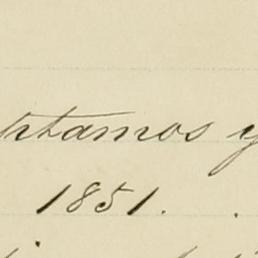 rtamos y
1851.